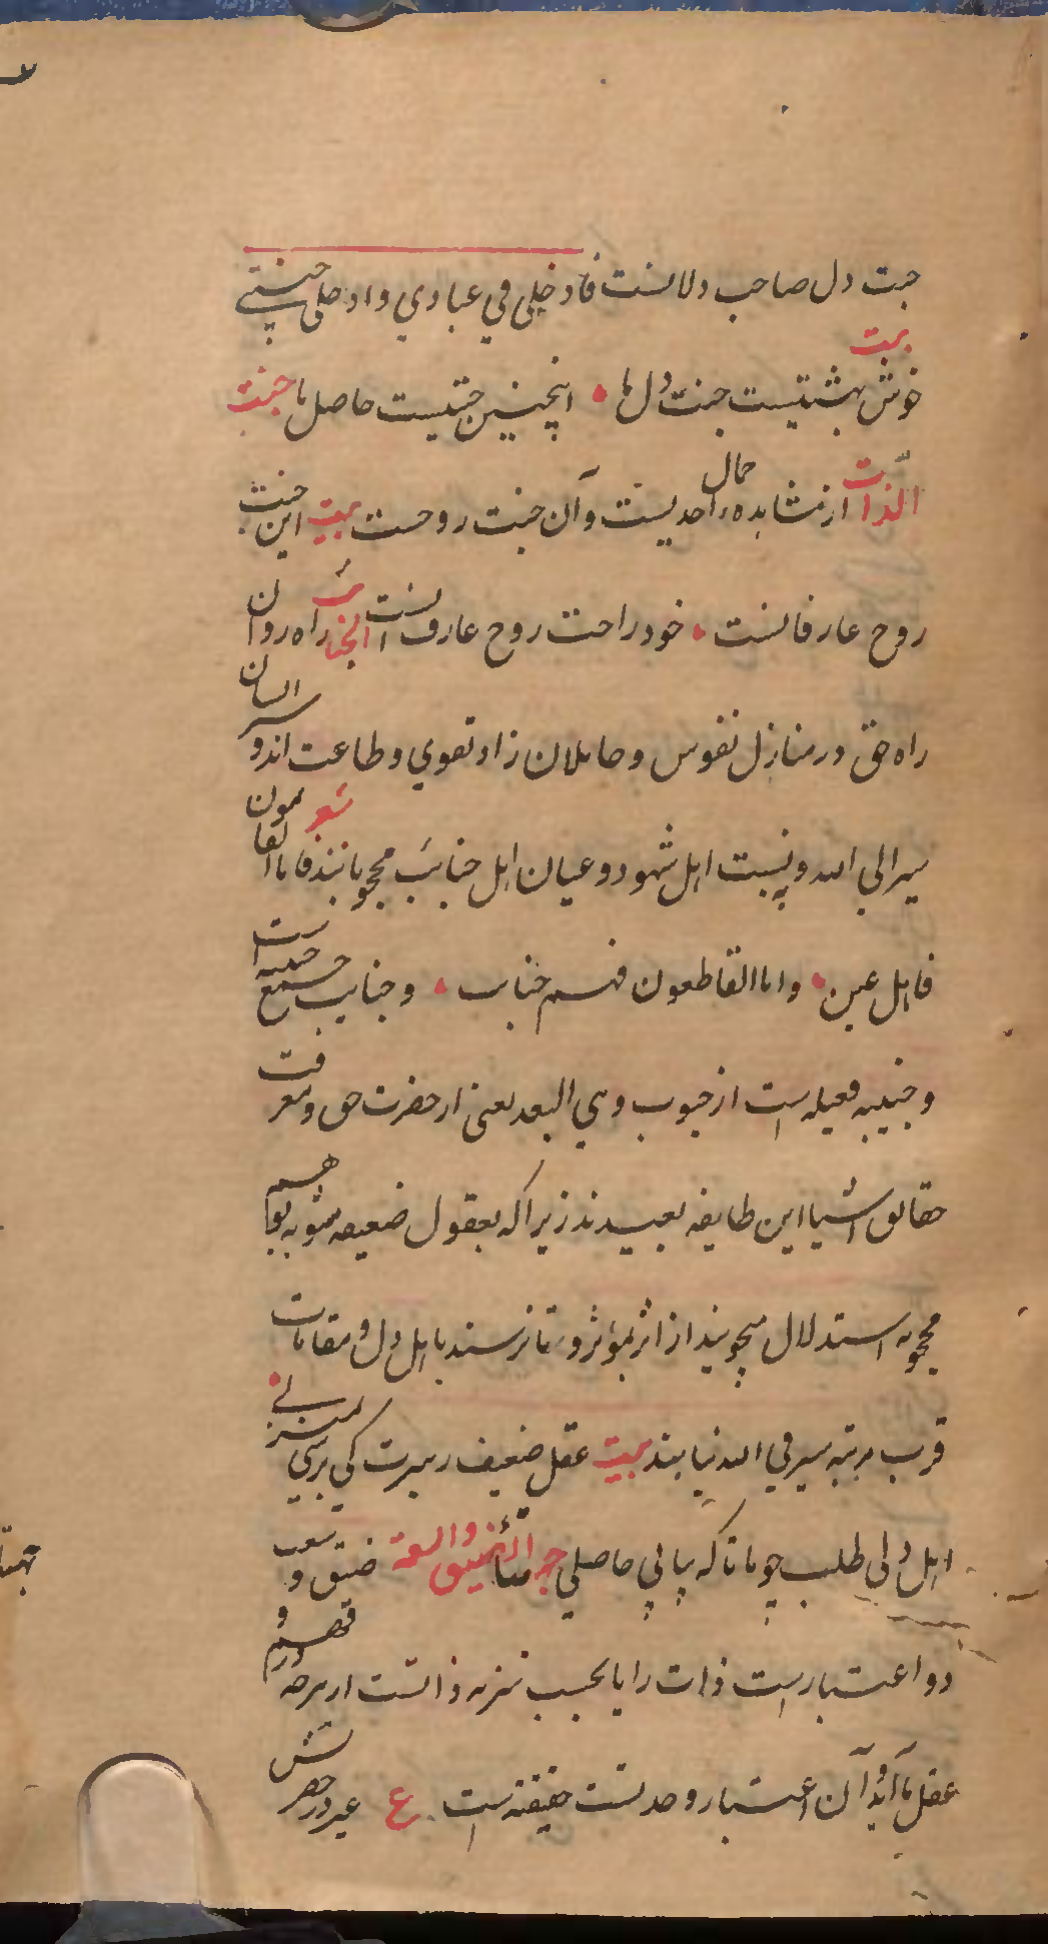 جنت دل صاحب دلانست فادخلی فی عبادی وادخلی جنتی
بیت
خوش بهشتیست جنت دل ما اینچنین جنتیست حاصل ما جنت
الذات از مشاهده جمال احدیست و آن جنت روحست بیت این جنت
روح عارفانست خود راحت روح عارف آنست الجنائب راه روان
راه حق در منازل نفوس و حاملان زاد تقوی و طاعت اند و آن سایران
سیر الی الله و به نسبت اهل شهود و عیان اهل جنائب محجوبانند شعر فاما القائمون
فاهل عین واما القاطعون فهم جنایب و جنایب جمع جنیبه است
و جنیبه فعیله است از جنوب وهی البعد یعنی از حضرت حق و معرفت
حقایق اشیا این طایفه بعیدند زیرا که بعقول ضعیفه مشوبه بوهم
محجوبه استدلال میجویند از اثر بمؤثر و تا نرسند باهل دل و مقامات
قرب مرتبه سیر فی الله نیابند بیت عقل ضعیف رهبرت کی برسی بمنزلی
اهل دلی طلب چو ما تا که بیابی حاصلی جهتا الضیق والسعة ضیق و سعت
دو اعتبار است ذات را یا بحسب تنزیه ذاتست از هرچه در فهم و
عقل ما آید و آن اعتبار وحدتست حقیقة است ع غیر در حضرتش